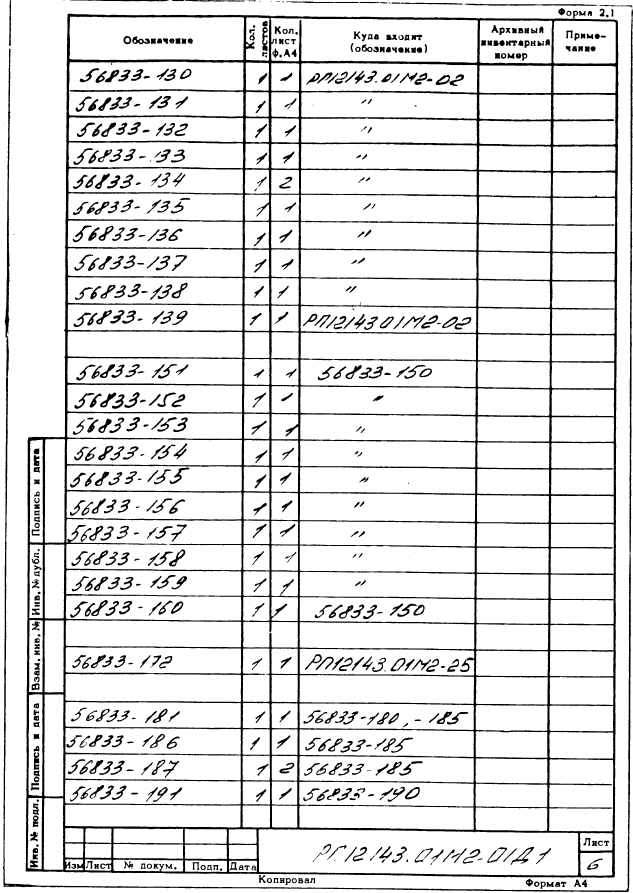 Форма 2.1
Обозначение Кол. листов Кол. лист ф.А4 Куда входит (обозначение) Архивный инвентарный номер Приме-чание
56833-130 1 1 РП12143.01М2-02
56833-131 1 1 "
56833-132 1 1 "
56833-133 1 1 "
56833-134 1 2 "
56833-135 1 1 "
56833-136 1 1 "
56833-137 1 1 "
56833-138 1 1 "
56833-139 1 1 РП12143.01М2-02
56833-151 1 1 56833-150
56833-152 1 1 "
56833-153 1 1 "
56833-154 1 1 "
56833-155 1 1 "
56833-156 1 1 "
56833-157 1 1 "
56833-158 1 1 "
56833-159 1 1 "
56833-160 1 1 56833-150
56833-172 1 1 РП12143.01М2-25
56833-181 1 1 56833-180,-185
56833-186 1 1 56833-185
56833-187 1 2 56833-185
56833-191 1 1 56833-190
Подпись и дата
Инв. № дубл.
Взам. инв. №
Подпись и дата
Инв. № подл.
Изм Лист № докум. Подп. Дата
РП12143.01М2-01Д1
Лист
6
Копировал Формат А4